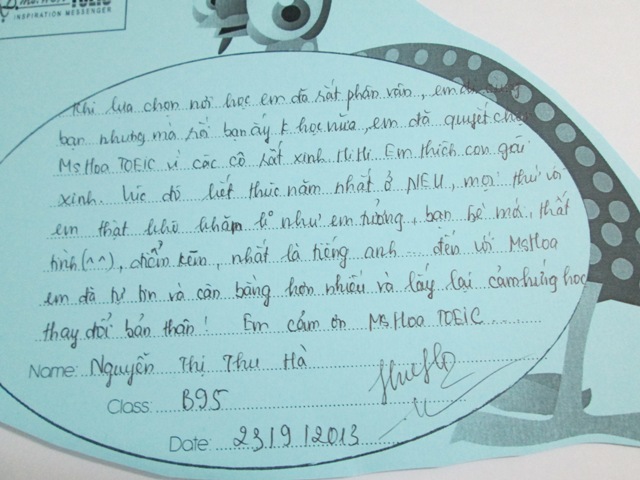 TOEIC
INSPIRATION MESSENGER
Khi lựa chọn nơi học em đã rất phân vân, em
bạn nhưng mà số bạn ấy k học nữa, em đã quyết chọn
MsHoa TOEIC vì các cô rất xinh HiHi Em thích con gái
xinh. Lúc đó kết thúc năm nhất ở NEU, mọi thứ với
em thật khó khăn k như em tưởng, bạn bè mới, thất
tình (^^), điểm kém, nhất là tiếng anh ... đến với MsHoa
em đã tự tin và cân bằng hơn nhiều và lấy lại cảm hứng học
thay đổi bản thân! Em cảm ơn Ms Hoa TOEIC
Name: Nguyễn Thị Thu Hà
Class: B95
Date: 23/9/2013